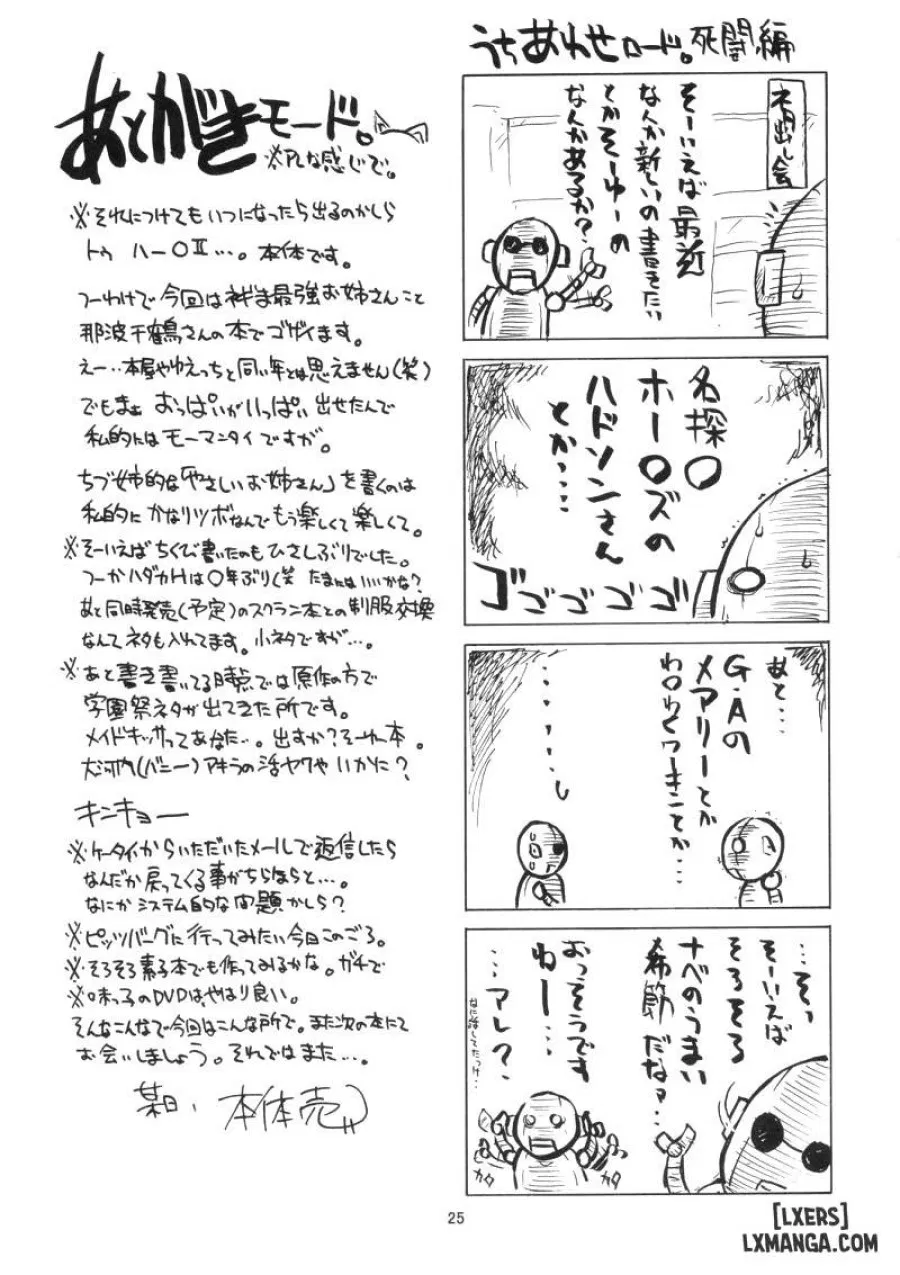 うちあわせロード。死闘編
ネタ出し会
そーいえば最近
なんか新しいの書きたい
とかそーゆーの
なんかあるか?
名探〇
ホー〇ズの
ハドソンさん
とか・・・・
ゴゴゴゴゴ
あと・・・
G・Aの
メアリーとか
わ〇わくワーキンとか・・・
・・・そっ
そーいえば
そろそろ
ナベのうまい
季節だなァ・・・
おっそうです
ねー・・・
・・・アレ?
なに話してたっけ・・
カタ
カタ
あとがきモード。
※アレな感じで。
※それにつけてもいつになったら出るのかしら
トゥ ハー〇Ⅱ・・・。本体です。
つーわけで今回はネギま最強お姉さんこと
那波千鶴さんの本でゴザイます。
えー・・本屋やゆえっちと同い年とは思えません(笑)
でもまぁ おっぱいがいっぱい出せたんで
私的にはモーマンタイですが。
ちづ姉的な「やさしいお姉さん」を書くのは
私的にかなりツボなんでもう楽しくて楽しくて。
※そーいえばちくび書いたのもひさしぶりでした。
つーかハダカHは〇年ぶり(笑 たまにはいいかな?
あと同時発売(予定)のスクラン本との制服交換
なんてネタも入れてます。小ネタですが・・・。
※あと書き書いてる時点では原作の方で
学園祭ネタが出てきた所です。
メイドキッサってあなた・・。出すか?そーゆー本。
大河内(バニー)アキラの活ヤクやいかに?
キンキョー
※ケータイからいただいたメールで返信したら
なんだか戻ってくる事がちらほらと・・・。
なにかシステム的な問題かしら?
※ピッツバーグに行ってみたい今日このごろ。
※そろそろ素子本でも作ってみるかな。ガチで
※味っ子のDVDはやはり良い。
そんなこんなで今回はこんな所で。また次の本にて
お会いしましょう。それではまた・・・。
某日、本体売
25
[LXERS]
LXMANGA.COM